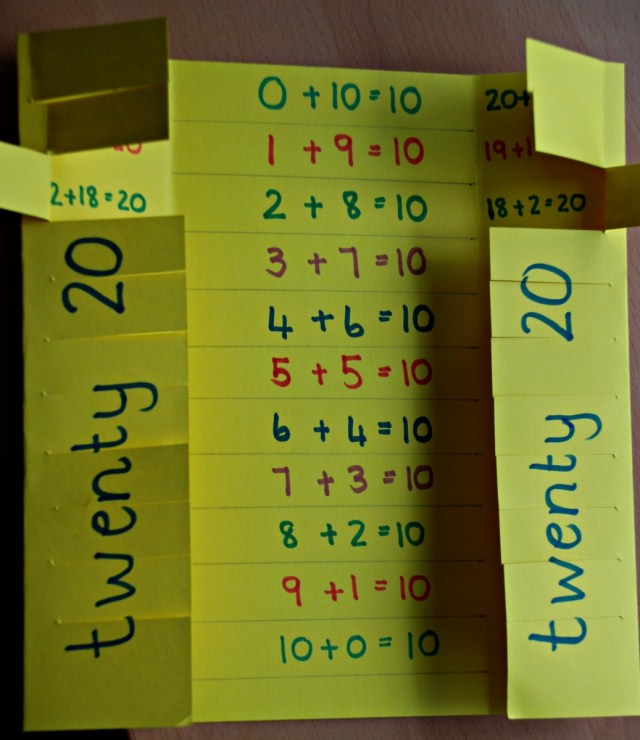 0 + 10 = 10 20+
1 + 9 = 10 19+1
2+18=20 2 + 8 = 10 18+2=20
3 + 7 = 10
4 + 6 = 10
5 + 5 = 10
6 + 4 = 10
7 + 3 = 10
8 + 2 = 10
9 + 1 = 10
10 + 0 = 10
twenty 20
twenty 20